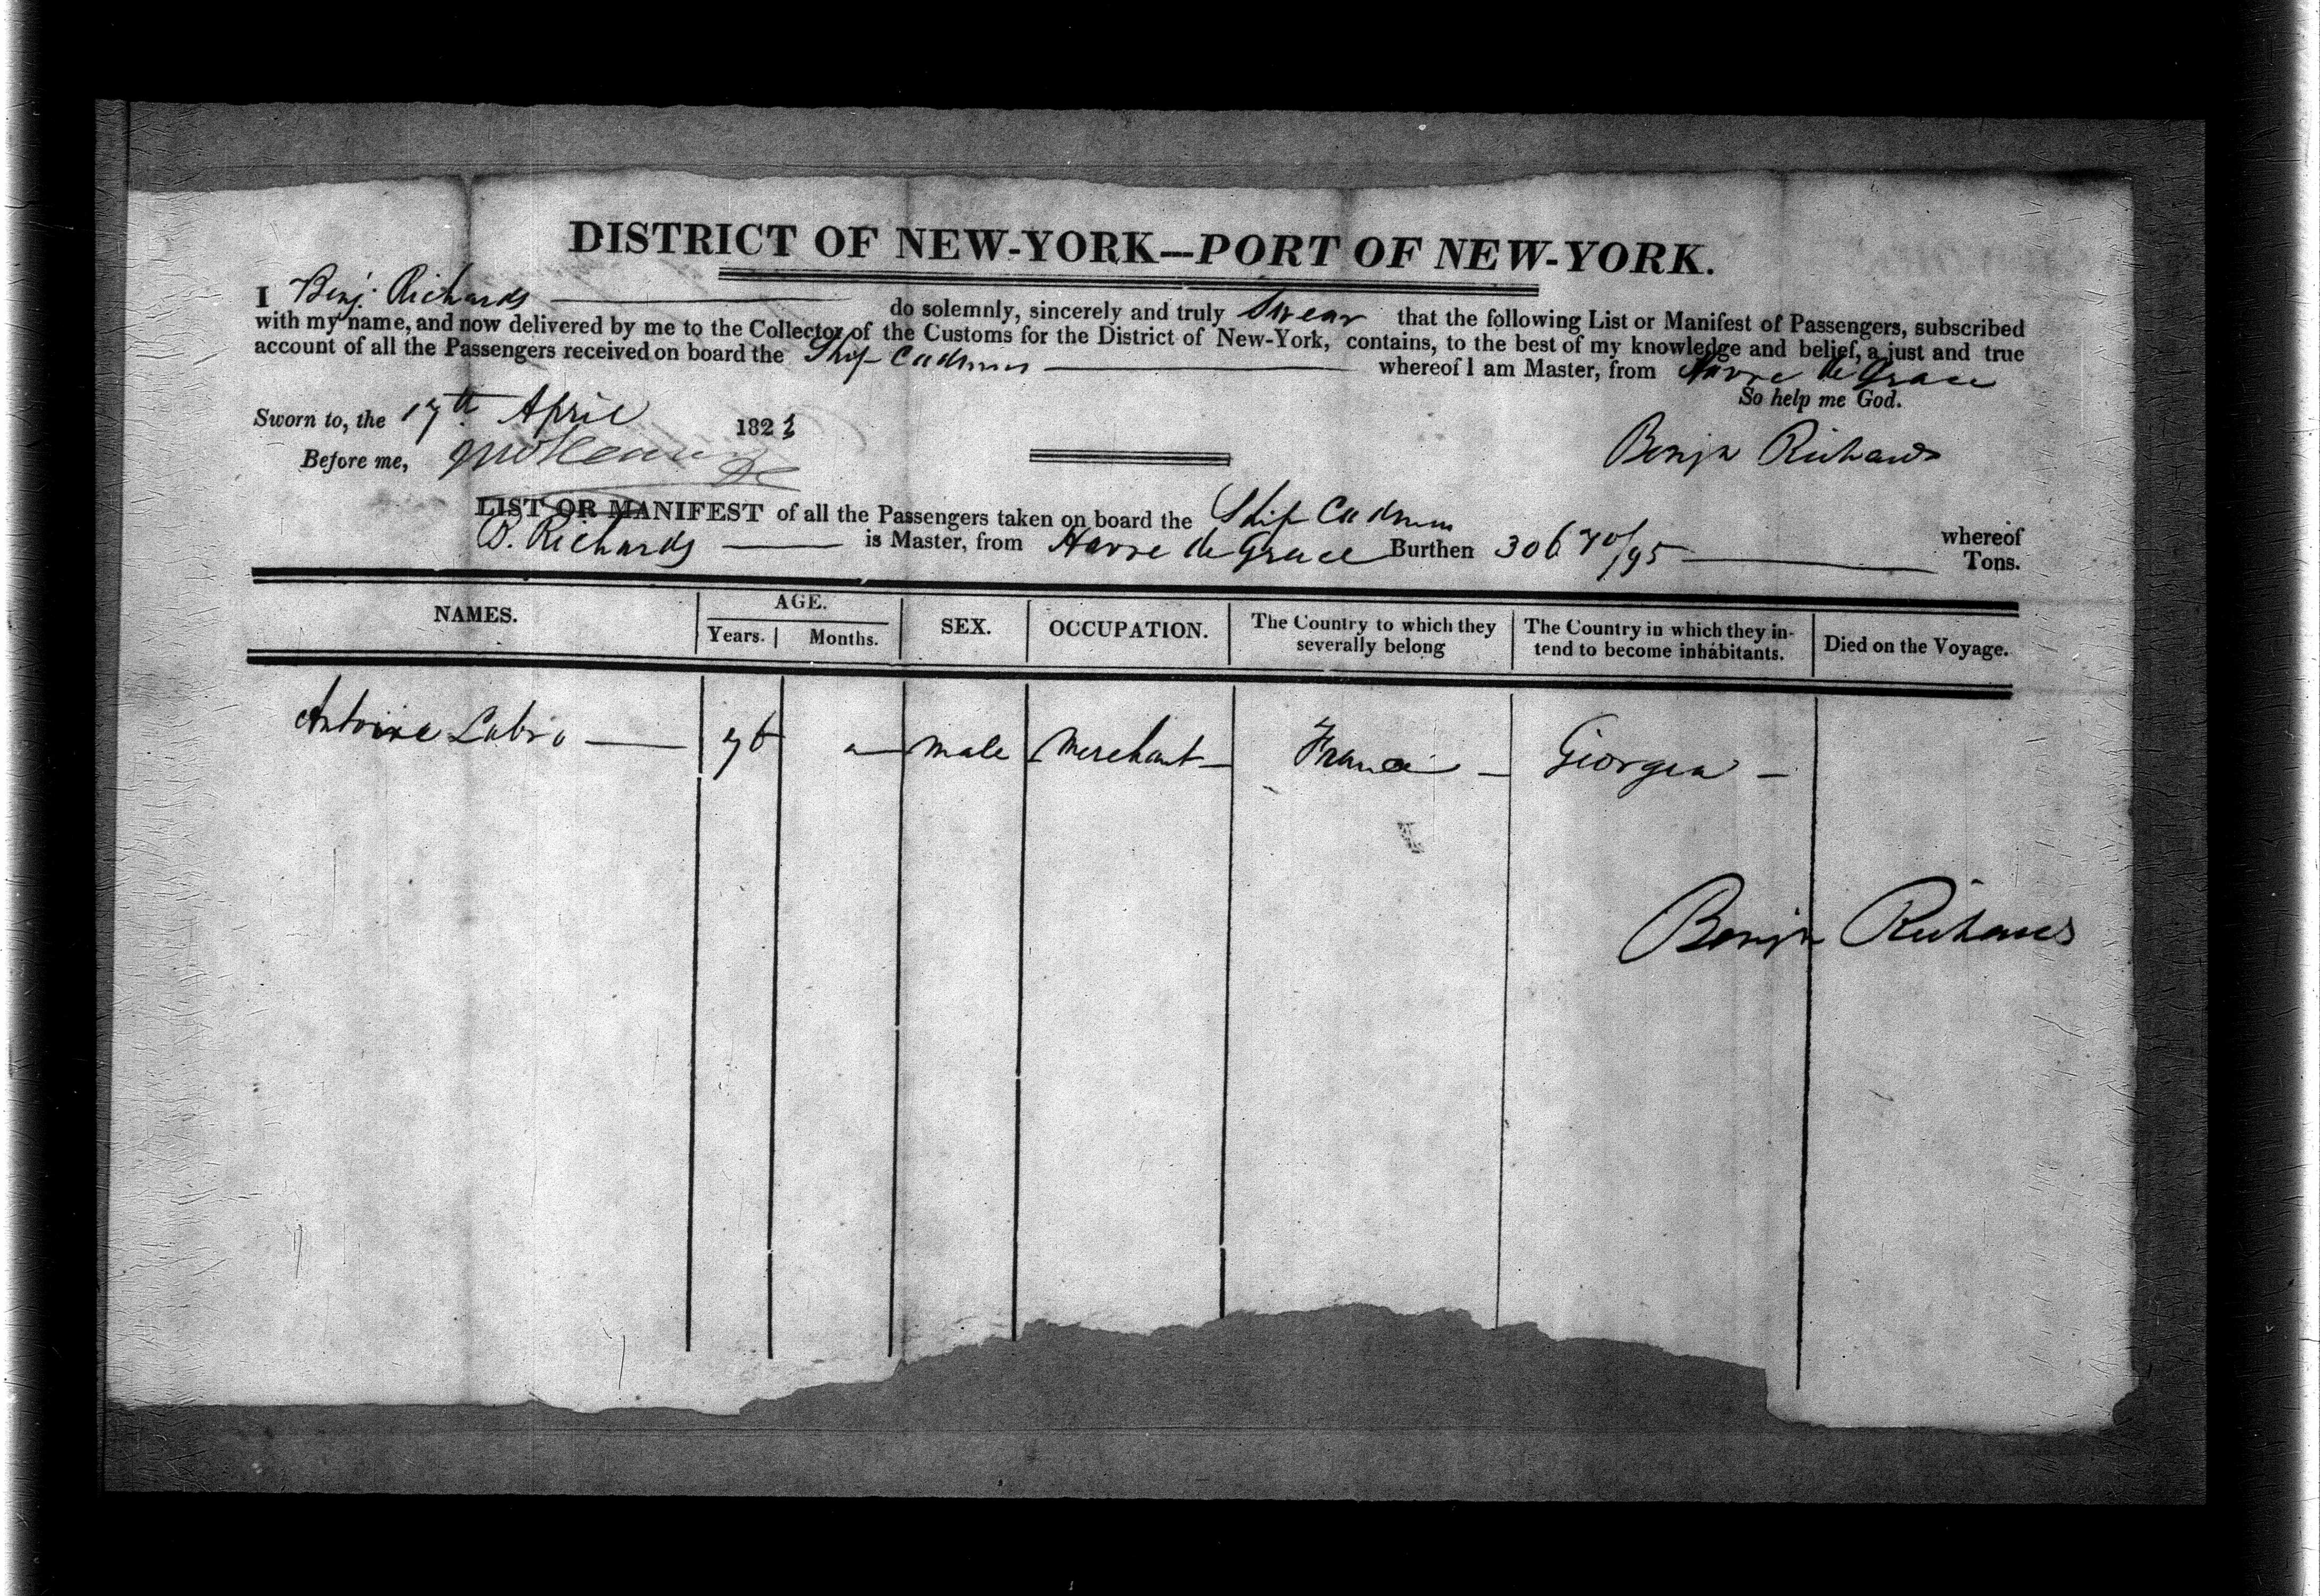 DISTRICT OF NEW-YORK—PORT OF NEW-YORK.
I Benj. Richards do solemnly, sincerely and truly Swear that the following List or Manifest of Passengers, subscribed
with my name, and now delivered by me to the Collector of the Customs for the District of New-York, contains, to the best of my knowledge and belief, a just and true
account of all the Passengers received on board the Ship Cadmus whereof I am Master, from Havre de Grace
So help me God.
Sworn to, the 17th April 1823
Benjn Richards
Before me,
LIST OR MANIFEST of all the Passengers taken on board the Ship Cadmus whereof
B. Richards is Master, from Havre de Grace Burthen 306 70/95 Tons.
NAMES. AGE. Years. Months. SEX. OCCUPATION. The Country to which they severally belong The Country in which they intend to become inhabitants. Died on the Voyage.
Antoine Labro male Merchant France Georgia
Benjn Richards